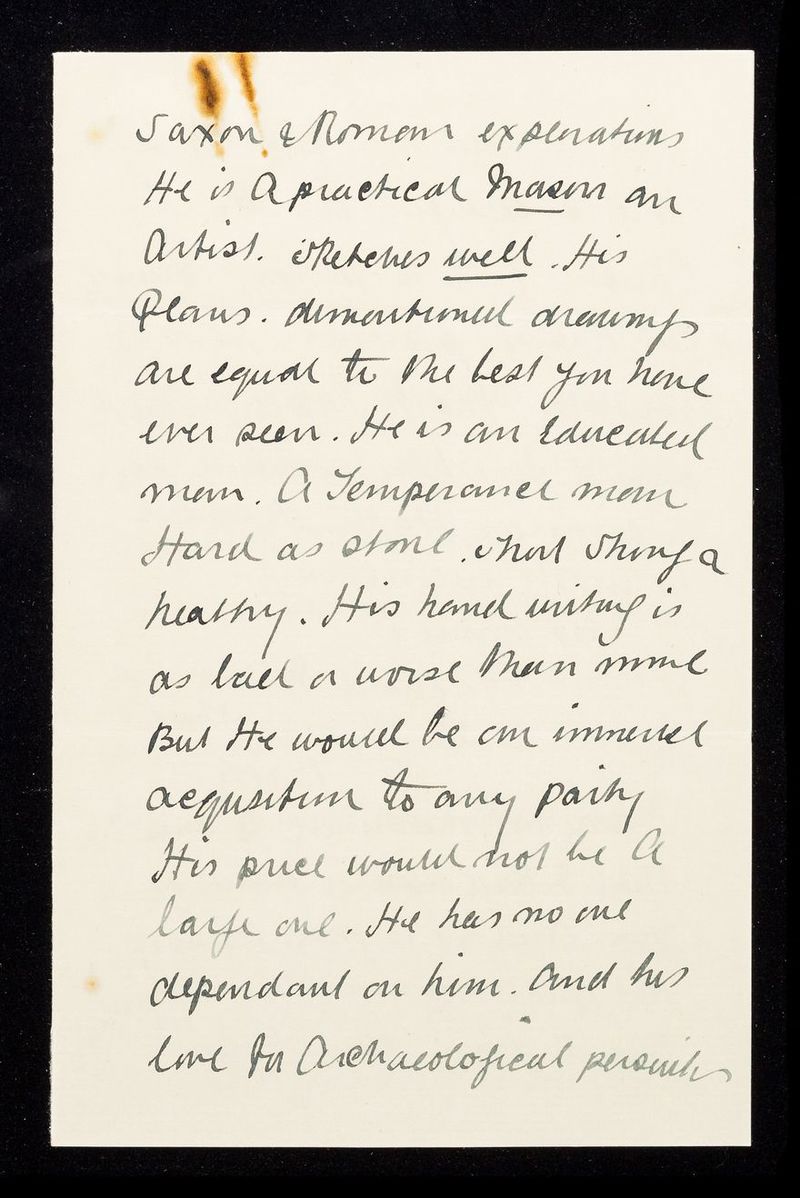 Saxon & Roman explorations
He is A practical Mason an
Artist. sketches well. His
Plans. dimentional drawings
are equal to the best you have
ever seen. He is an Educated
man. A Temperance man
Hard as stone. short strong &
healthy. His hand writing is
as bad or worse than mine
But He would be an immense
acqusition to any party
His price would not be A
large one. He has no one
dependant on him. And his
love for Archaeological persuits